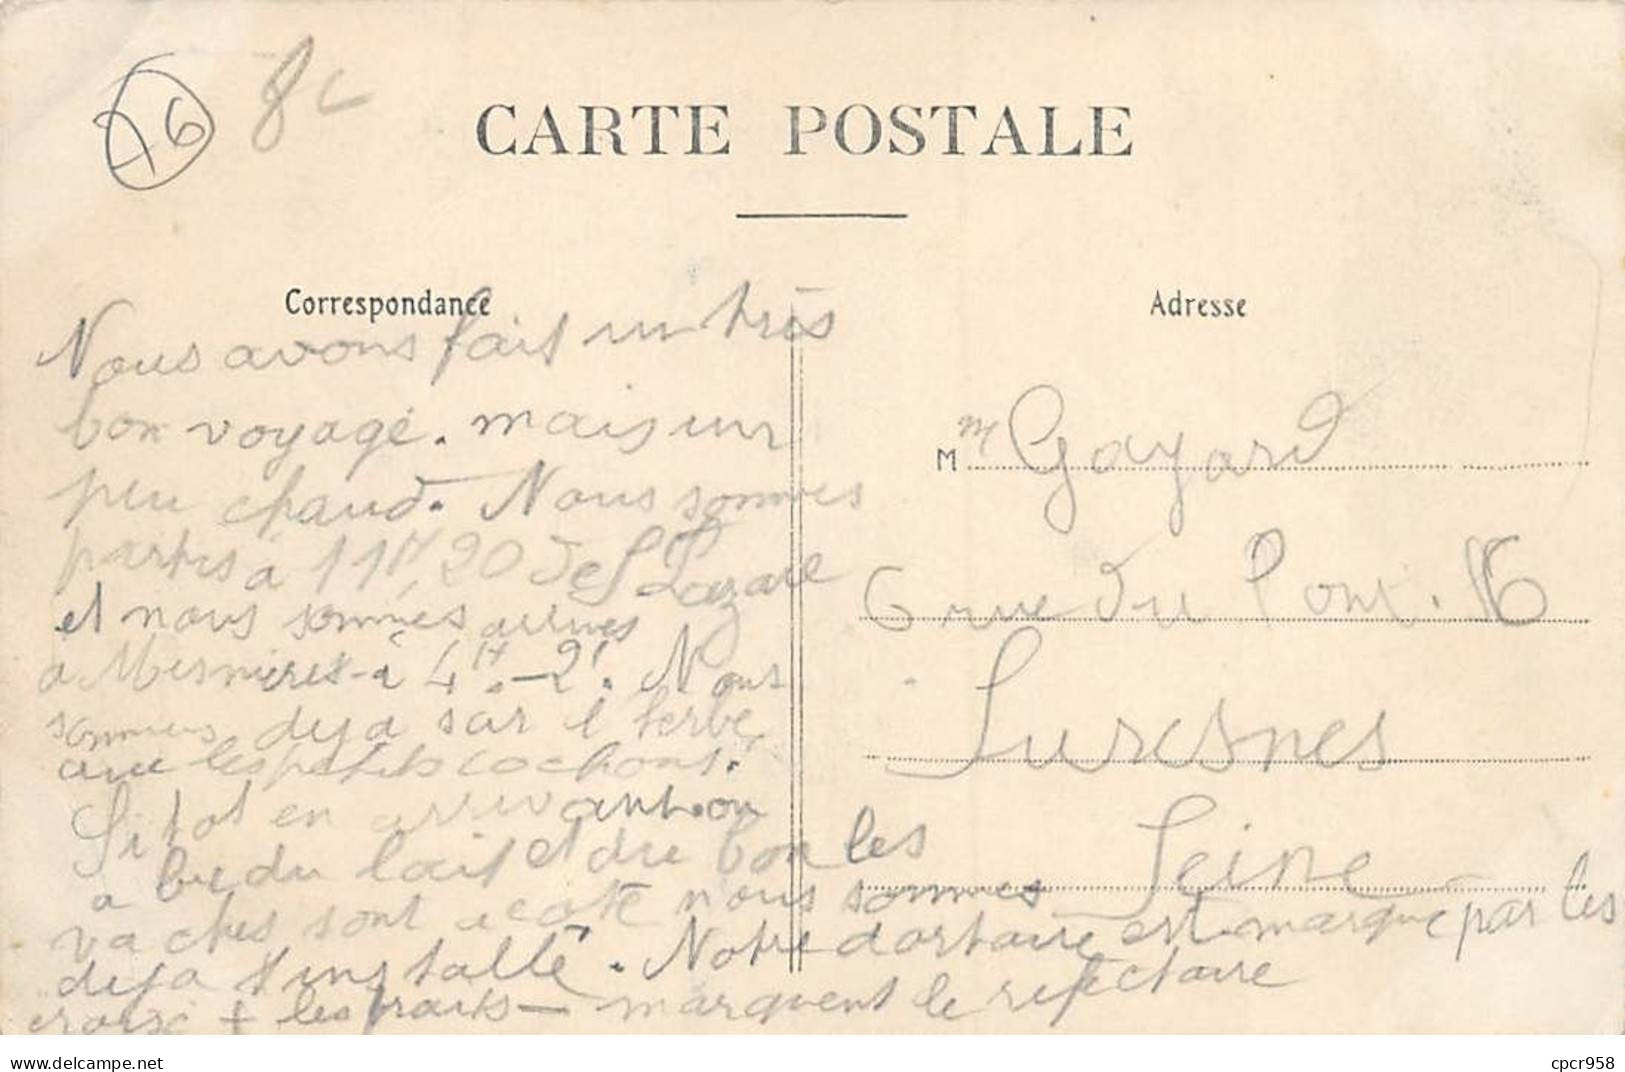 76 8c
CARTE POSTALE
Correspondance
Adresse
Nous avons fait un très
bon voyage. mais un
peu chaud. Nous sommes
partis à 11H, 20 de St Lazare
et nous sommes arrives
a Mesnieres à 4H.-2'. Nous
sommes deja sur l'herbe
avec les petits cochons.
Si tot en arrivant on
a bu du lait et du bon les
vaches sont a coté nous sommes
deja installé. Notre dortoire est marque par les
croix + les traits — marquent le refectoire
M m Gayard
6 rue du Pont. 16
Suresnes
Seine
https://www.delcampe.net
cpcr958